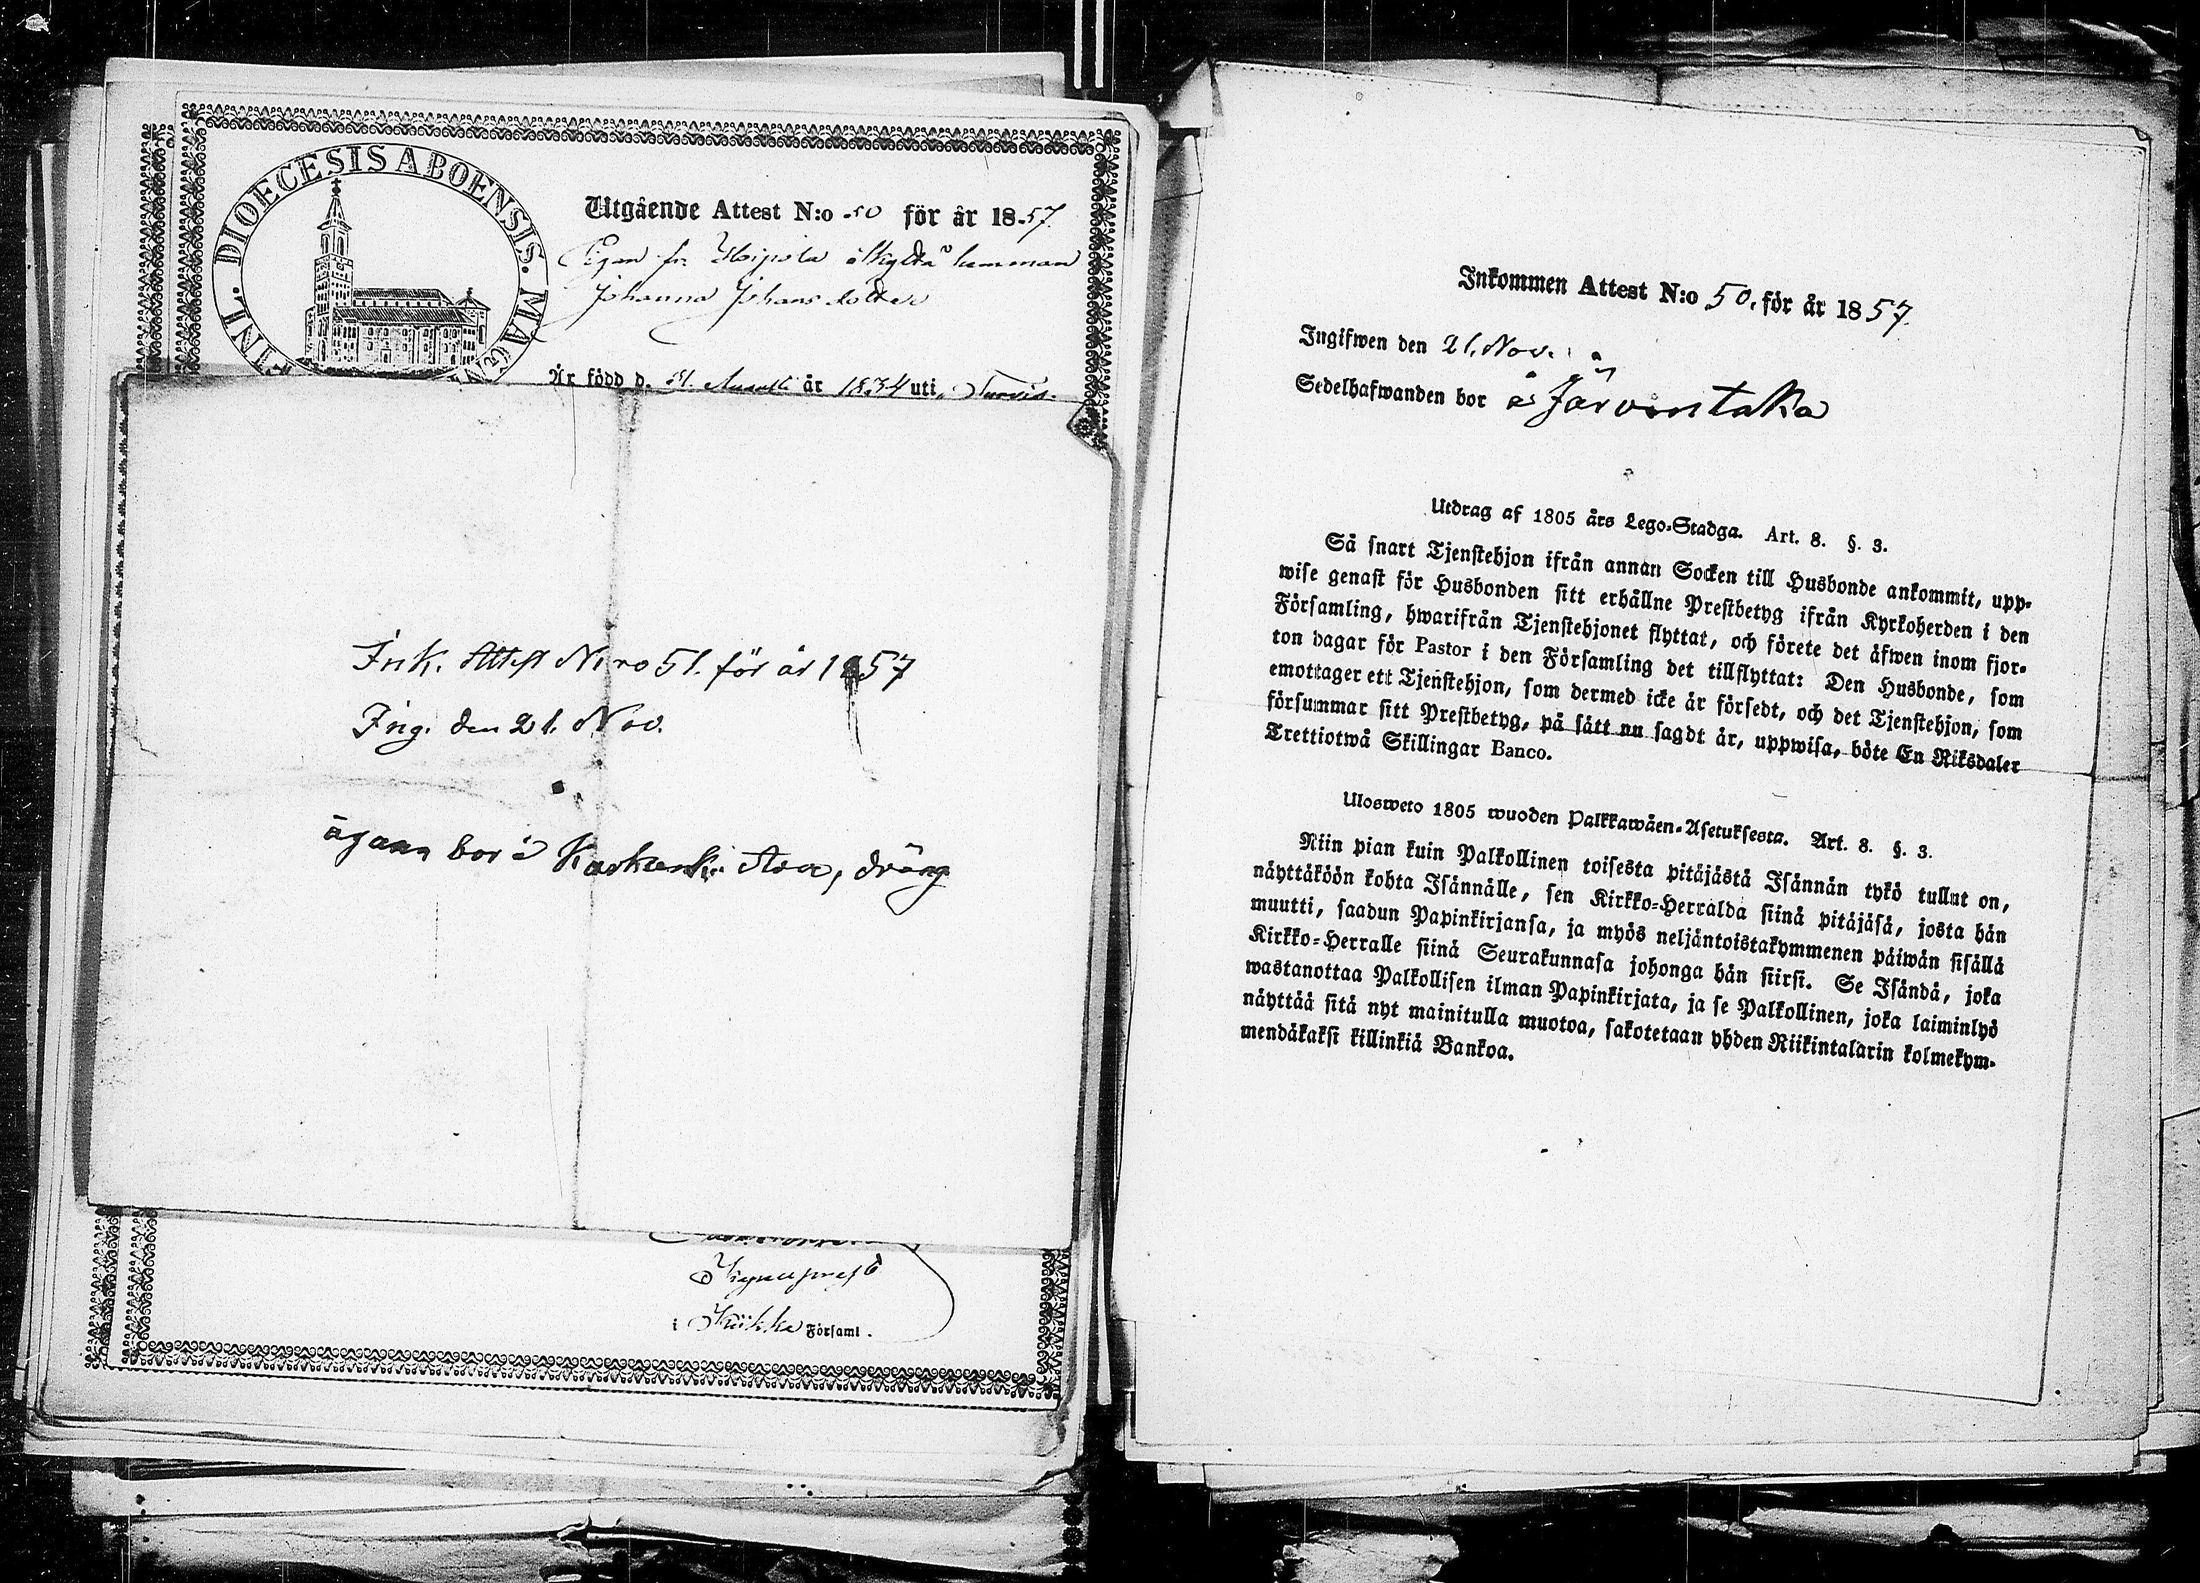 FINL. DIOECESIS ABOENSIS. MAG
Utgående Attest N:o 50 för år 1857.
Pigan fr.
Johanna Johansdotter
Är född d. 31. Augusti år 1834 uti
Ink. Attest N:ro 51. för år 1857
Ing. den 21. Nov.
ägaren bor å dräng
i Kiikka Församl.
Inkommen Attest N:o 50. för år 1857.
Ingifwen den 21. Nov.
Sedelhafwanden bor å Järventaka
Utdrag af 1805 års Lego-Stadga. Art. 8. §. 3.
Så snart Tjenstehjon ifrån annan Socken till Husbonde ankommit, upp-
wise genast för Husbonden sitt erhållne Prestbetyg ifrån Kyrkoherden i den
Församling, hwarifrån Tjenstehjonet flyttat, och förete det äfwen inom fjor-
ton dagar för Pastor i den Församling det tillflyttat: Den Husbonde, som
emottager ett Tjenstehjon, som dermed icke är försedt, och det Tjenstehjon, som
försummar sitt Prestbetyg, på sätt nu sagdt är, uppwisa, böte En Riksdaler
Trettiotwå Skillingar Banco.
Ulosweto 1805 wuoden Palkkawäen-Asetuksesta. Art. 8. §. 3.
Niin pian kuin Palkollinen toisesta pitäjästä Isännän tykö tullut on,
näyttäköön kohta Isännälle, sen Kirkko-Herralda siinä pitäjäsä, josta hän
muutti, saadun Papinkirjansa, ja myös neljäntoistakymmenen päiwän sisällä
Kirkko-Herralle siinä Seurakunnasa johonga hän siirsi. Se Isändä, joka
wastanottaa Palkollisen ilman Papinkirjata, ja se Palkollinen, joka laiminlyö
näyttää sitä nyt mainitulla muotoa, sakotetaan yhden Riikintalarin kolmekym-
mendäkaksi killinkiä Bankoa.